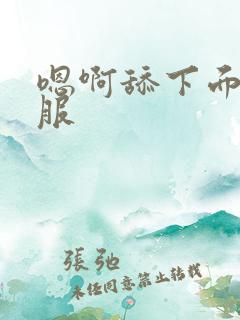 嗯啊舔下而
服
張弛
未经同意禁止转载